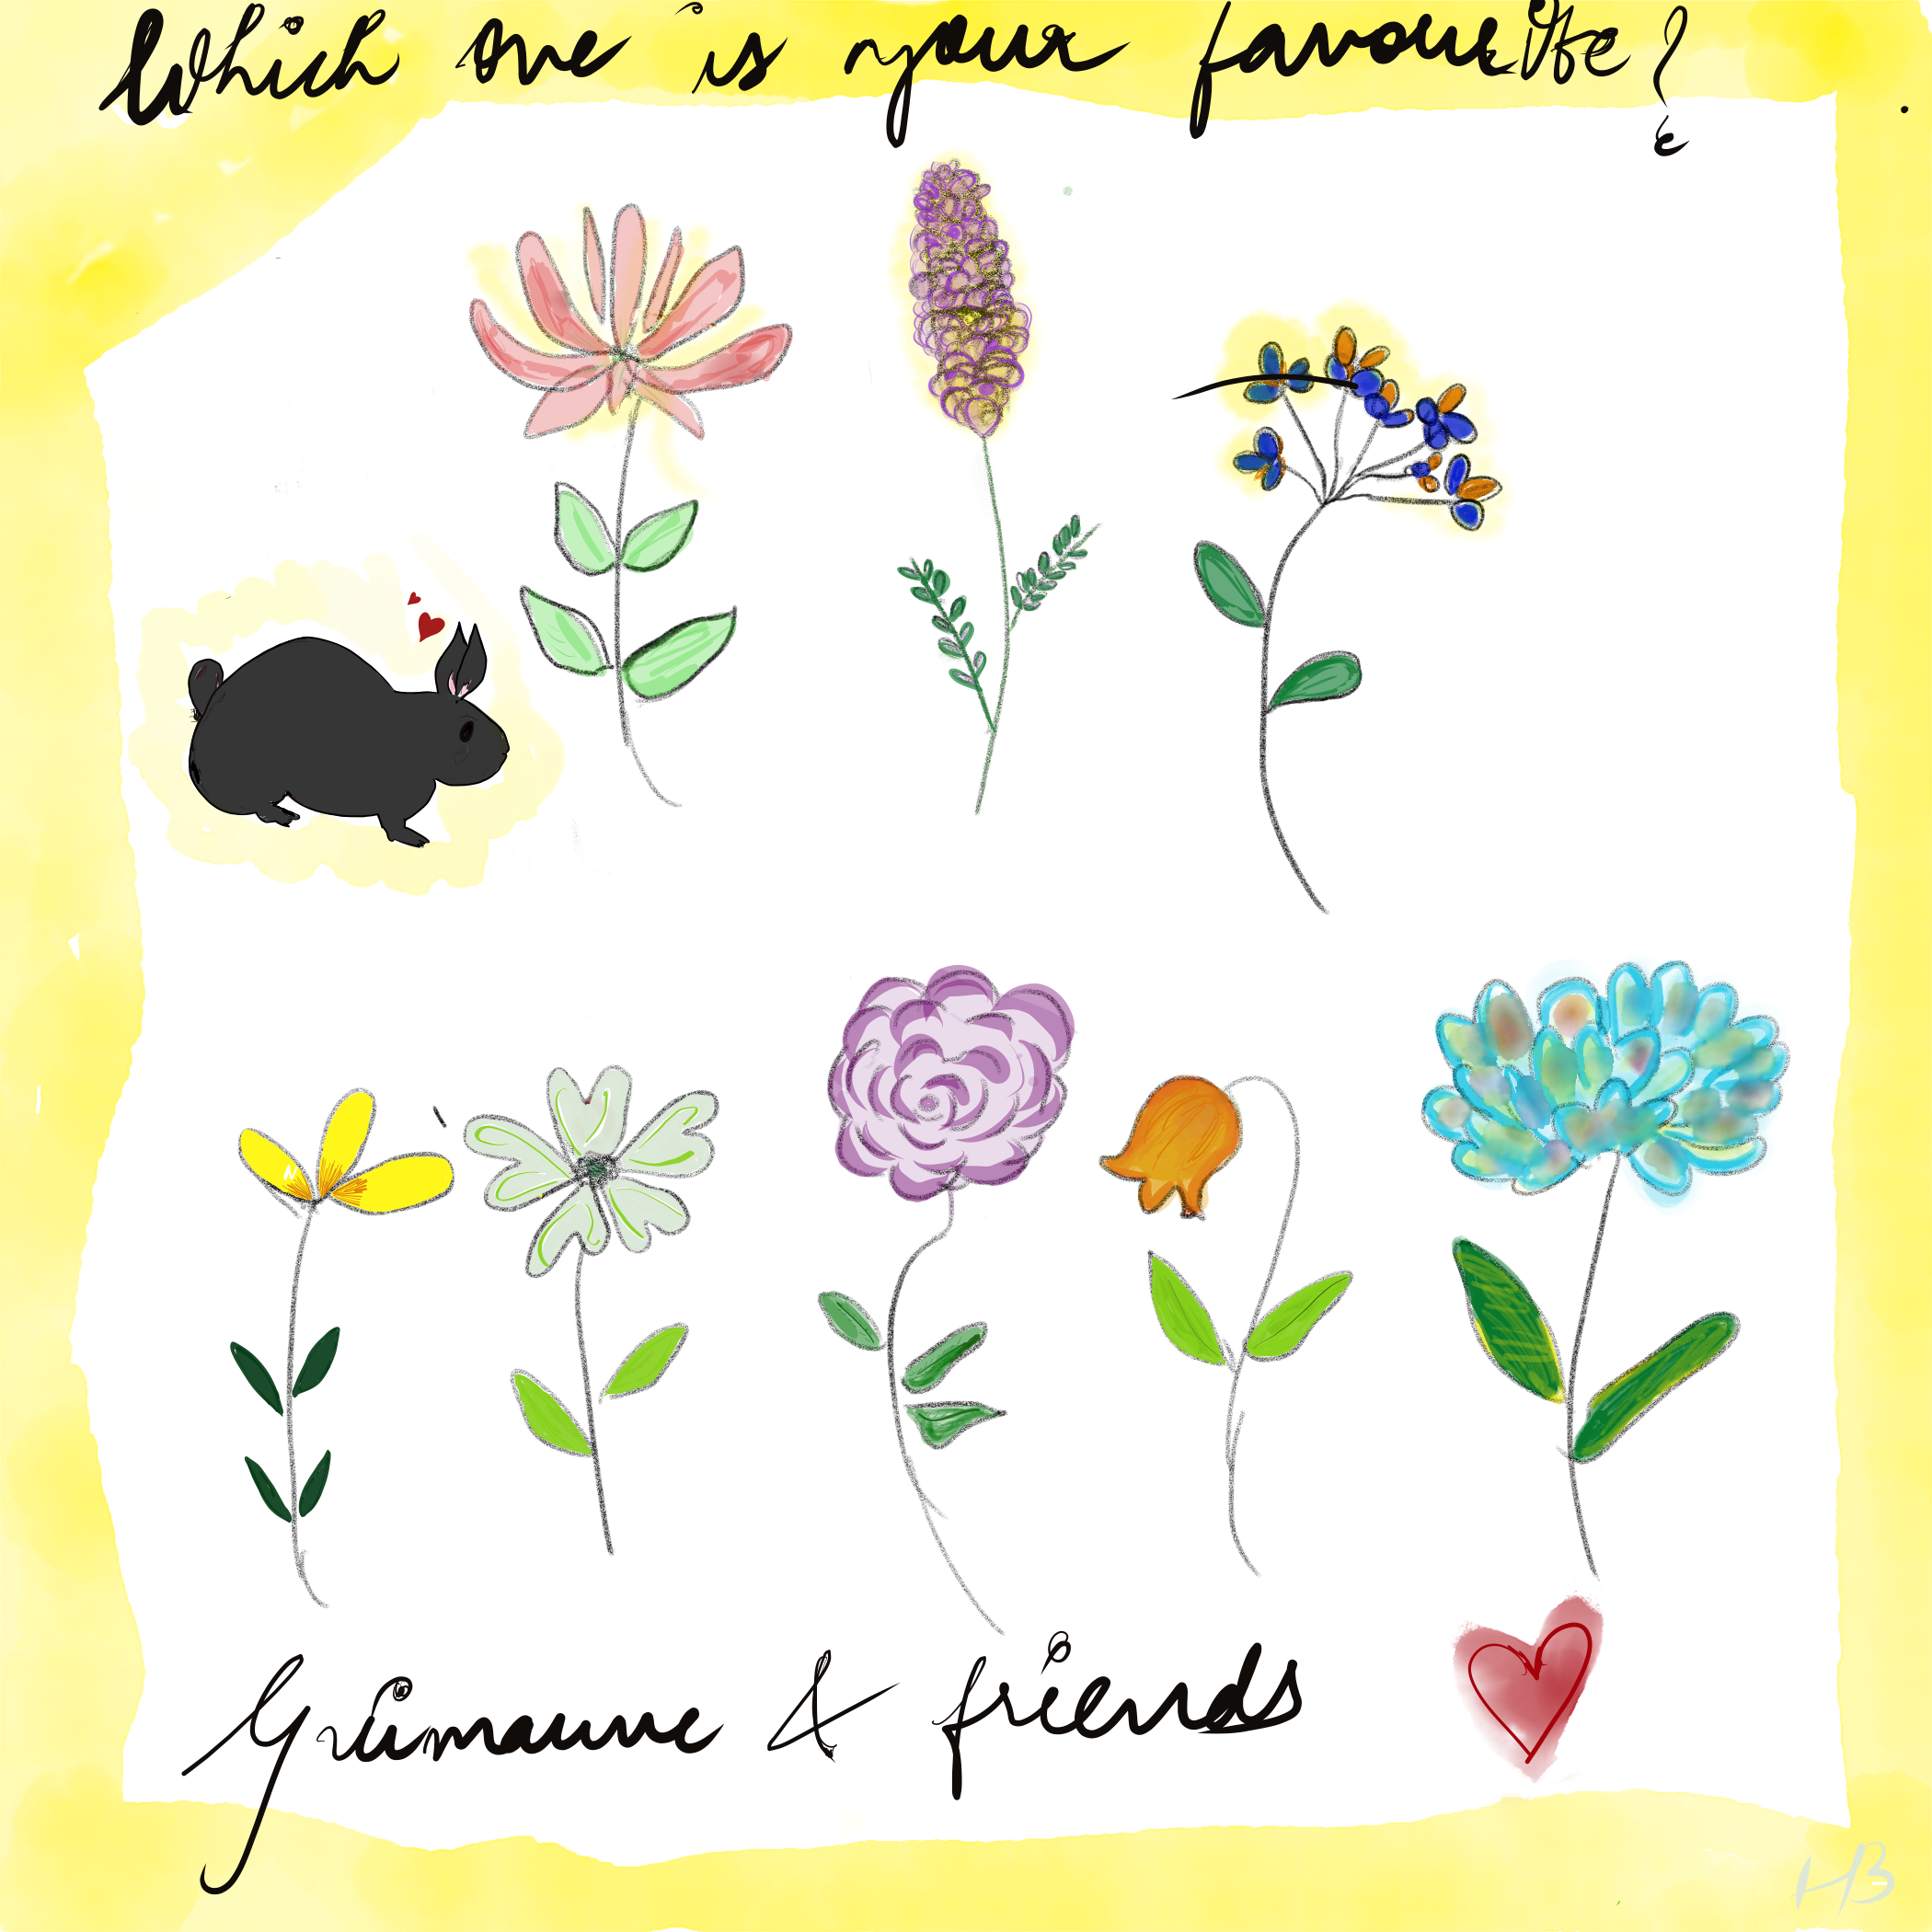 Which one is your favourite?
Grimauve & friends
HB